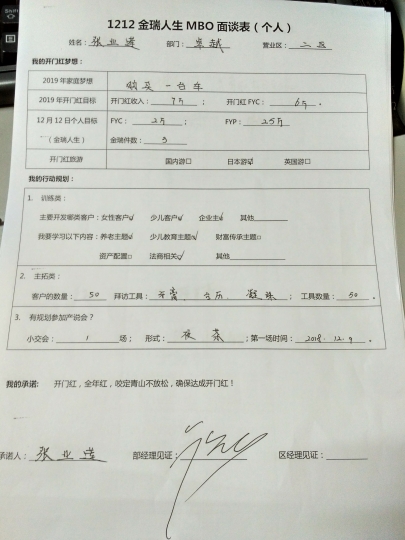 1212 金瑞人生 MBO 面谈表（个人）
姓名：张业莲 部门：卓越 营业区：二区
我的开门红梦想：
2019 年家庭梦想 购买一台车
2019 年开门红目标 开门红收入：7万； 开门红 FYC：6万。
12 月 12 日个人目标 FYC：2万； FYP：25万
（金瑞人生） 金瑞件数：3
开门红旅游 国内游□ 日本游☑ 英国游□
我的行动规划：
1. 训练类：
主要开发哪类客户：女性客户☑ 少儿客户☑ 企业主☑ 其他
我要学习以下内容：养老主题☑ 少儿教育主题☑ 财富传承主题□
资产配置□ 法商相关☑ 其他
2. 主拓类：
客户的数量：50 拜访工具：台历、；工具数量：50。
3. 有规划参加产说会？
小交会：1场； 形式：夜茶；第一场时间：2018.12.9。
我的承诺： 开门红，全年红，咬定青山不放松，确保达成开门红！
承诺人：张业莲 部经理见证： 区经理见证：